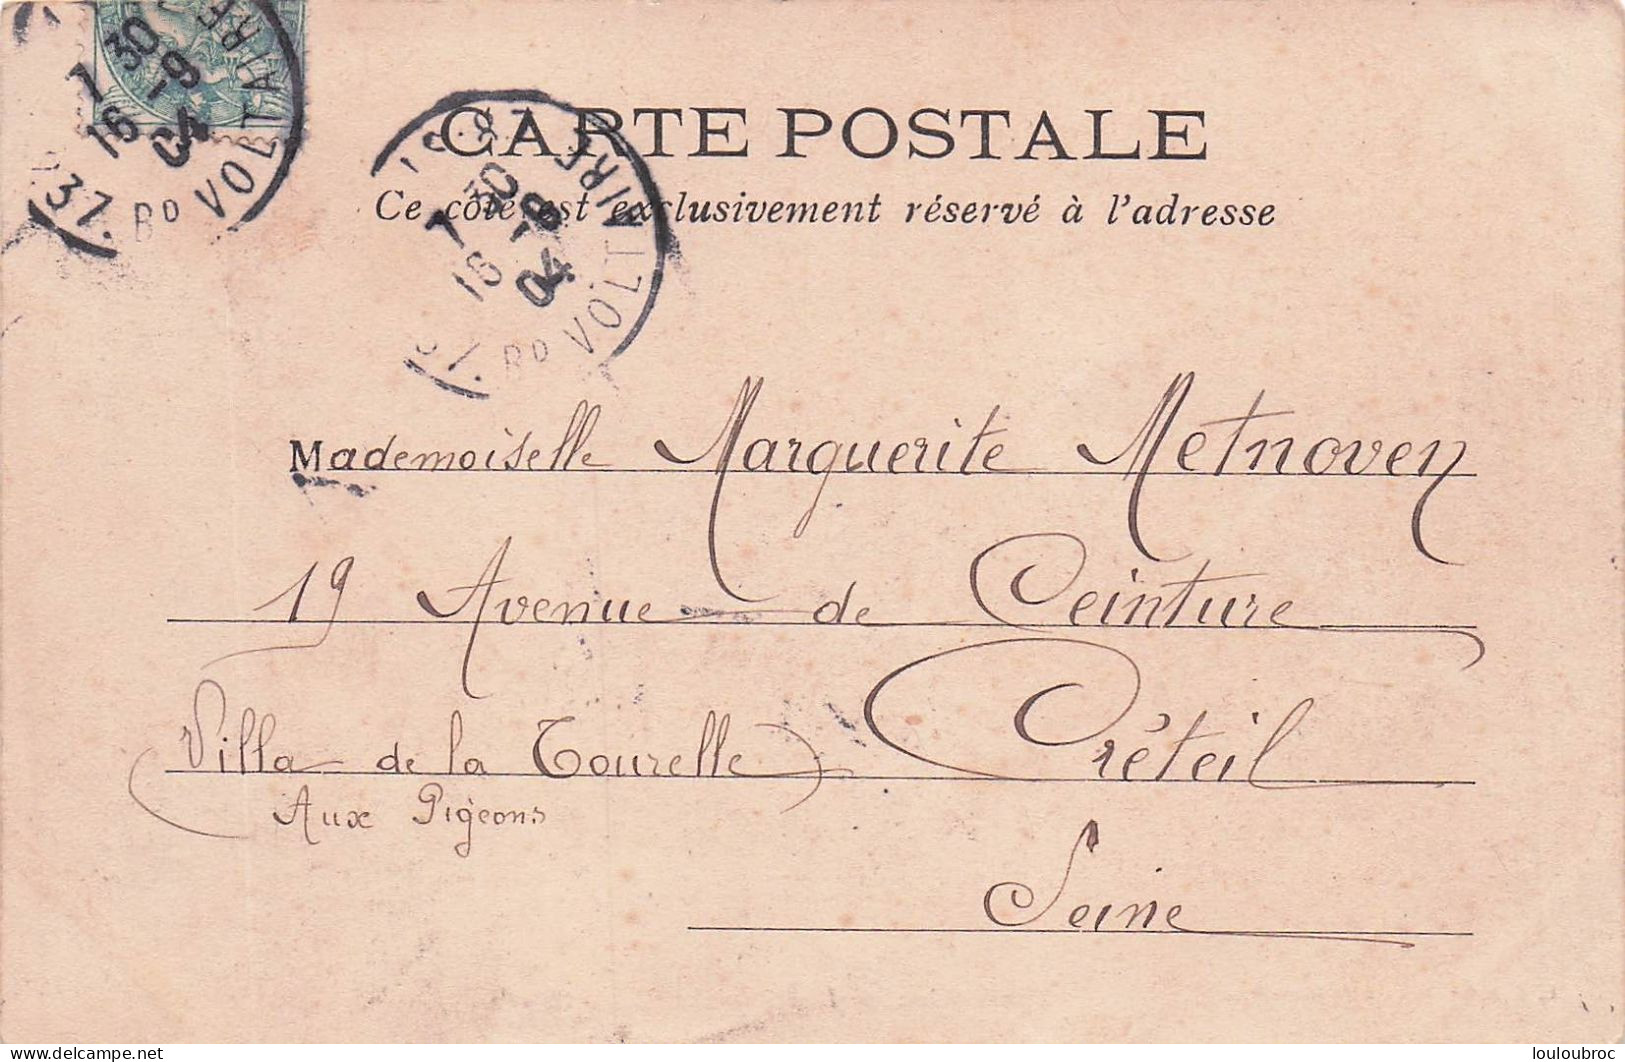 CARTE POSTALE
Ce côté est exclusivement réservé à l'adresse
7 30
16 -9
04
37. BD VOLTAIRE
7 30
16 -9
04
BD VOLTAIRE
Mademoiselle Marguerite Metnoven
19 Avenue de Ceinture
Villa de la Tourelle Créteil
Aux Pigeons
Seine
delcampe.net
louloubroc